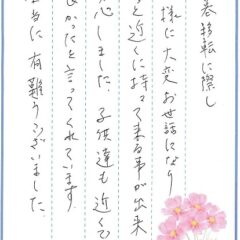 墓移転に際し
様に大変お世話になり
と近くに持って来る事が出来
心しました。子供達も近くで
良かったと言ってくれています
当に有難うございました。